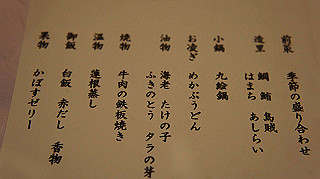 前菜　季節の盛り合わせ
造里　鯛　鮪　烏賊
はまち　あしらい
小鍋　九絵鍋
お凌ぎ　めかぶうどん
油物　海老　たけの子
ふきのとう　タラの芽
焼物　牛肉の鉄板焼き
温物　蓮根蒸し
御飯　白飯　赤だし　香物
果物　かぼすゼリー